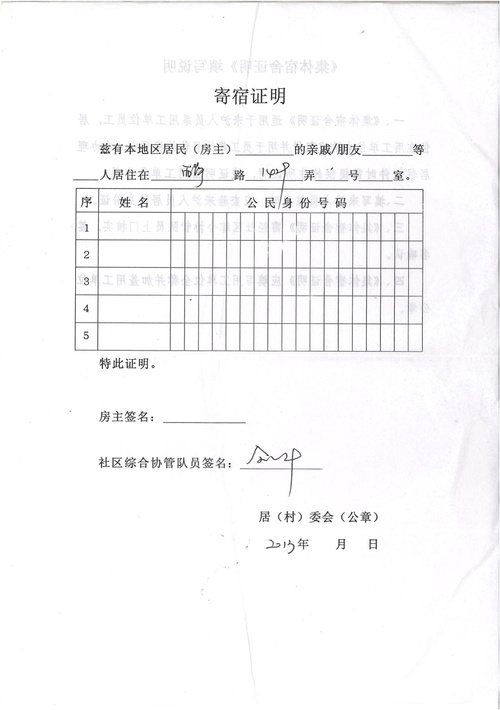 寄宿证明
兹有本地区居民（房主）________的亲戚/朋友______等
____人居住在______路 1429 弄____号______室。
序 姓名 公民身份号码
1
2
3
4
5
特此证明。
房主签名：
社区综合协管队员签名：
居（村）委会（公章）
2013年 月 日